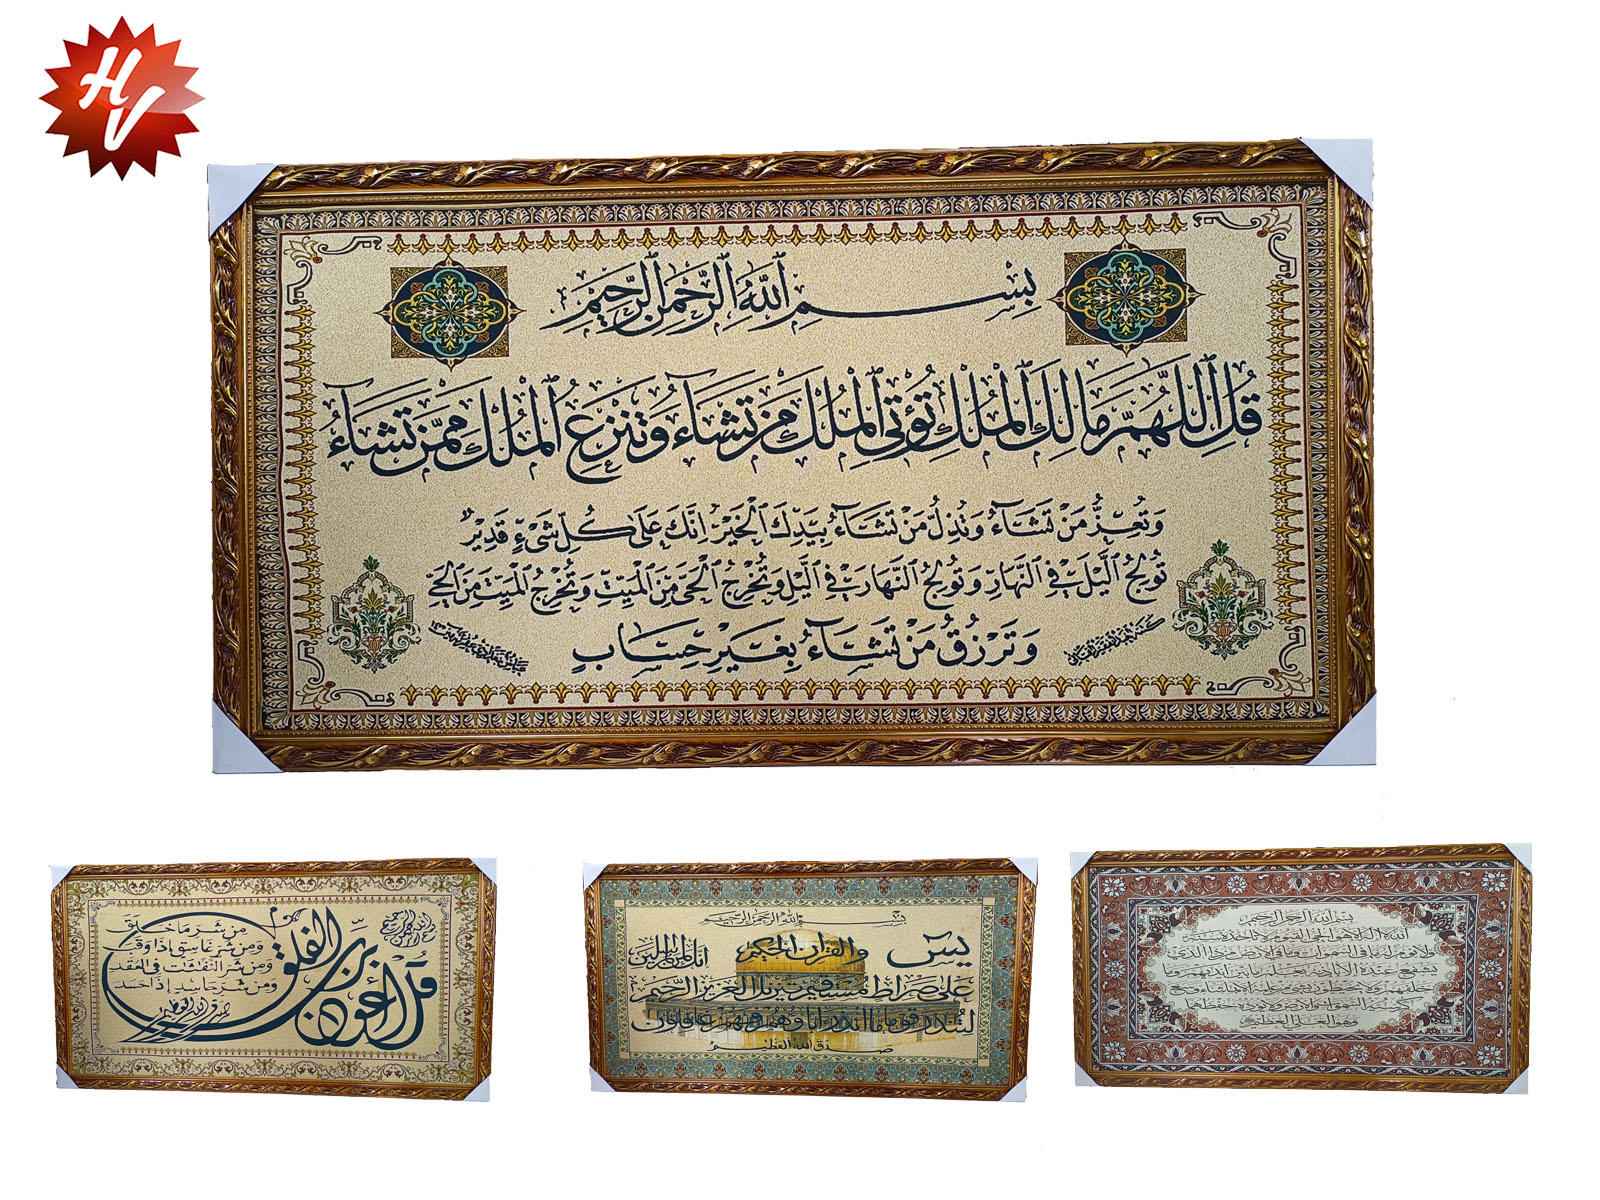 HV
بِسْمِ ٱللَّهِ ٱلرَّحْمٰنِ ٱلرَّحِيمِ
قُلِ ٱللَّهُمَّ مَالِكَ ٱلْمُلْكِ تُؤْتِي ٱلْمُلْكَ مَنْ تَشَاءُ وَتَنْزِعُ ٱلْمُلْكَ مِمَّنْ تَشَاءُ
وَتُعِزُّ مَنْ تَشَاءُ وَتُذِلُّ مَنْ تَشَاءُ بِيَدِكَ ٱلْخَيْرُ اِنَّكَ عَلَى كُلِّ شَيْءٍ قَدِيْرٌ
تُولِجُ ٱلَّيْلَ فِي ٱلنَّهَارِ وَتُولِجُ ٱلنَّهَارَ فِي ٱلَّيْلِ وَتُخْرِجُ ٱلْحَيَّ مِنَ ٱلْمَيِّتِ وَتُخْرِجُ ٱلْمَيِّتَ مِنَ ٱلْحَيِّ
وَتَرْزُقُ مَنْ تَشَاءُ بِغَيْرِ حِسَابٍ
قل أعوذ برب الفلق
من شر ما خلق
ومن شر غاسق إذا وقب
ومن شر النفاثات في العقد
ومن شر حاسد إذا حسد
صدق الله العظيم
بسم الله الرحمن الرحيم
يس والقرآن الحكيم إنك لمن المرسلين
على صراط مستقيم تنزيل العزيز الرحيم
لتنذر قوما ما أنذر آباؤهم فهم غافلون
صدق الله العظيم
بسم الله الرحمن الرحيم
الله لا إله إلا هو الحي القيوم لا تأخذه سنة
ولا نوم له ما في السموات وما في الأرض من ذا الذي
يشفع عنده إلا بإذنه يعلم ما بين أيديهم وما
خلفهم ولا يحيطون بشيء من علمه إلا بما شاء وسع
كرسيه السموات والأرض ولا يؤده حفظهما
وهو العلي العظيم